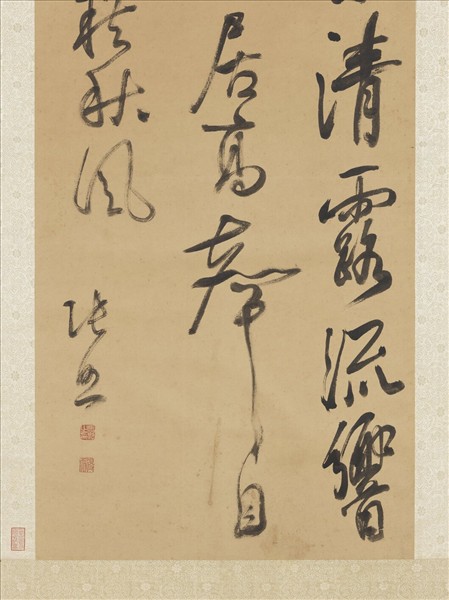 清露流響
居高聲自
藉秋風